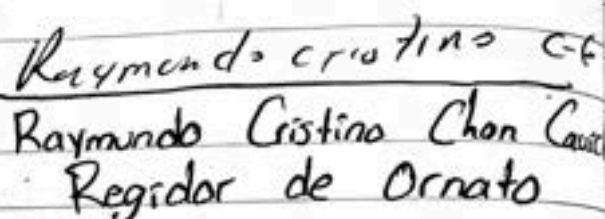 Raymundo cristino C-E
Raymundo Cristino Chan
Regidor de Ornato